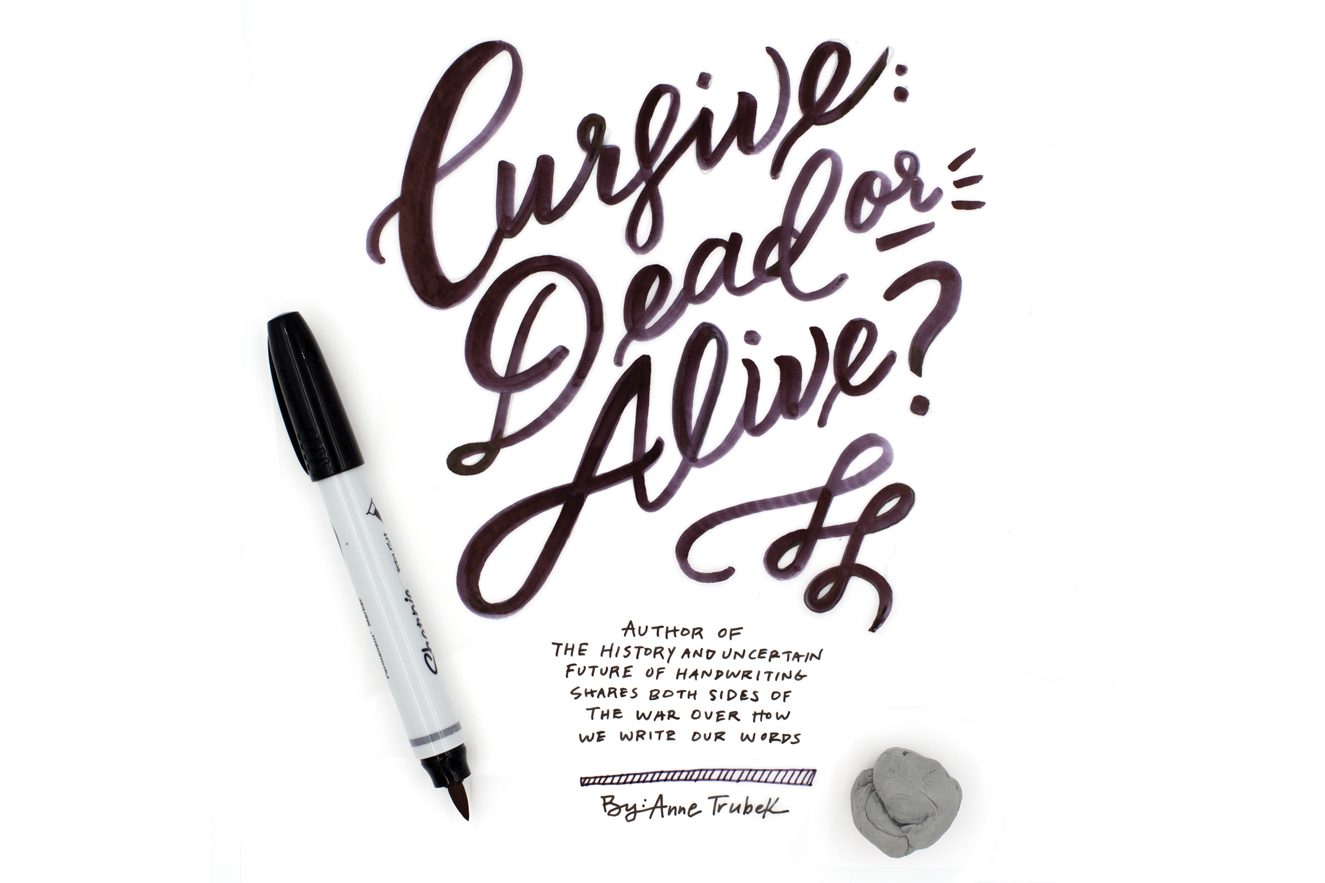 Cursive:
Dead or
Alive?
AUTHOR OF
THE HISTORY AND UNCERTAIN
FUTURE OF HANDWRITING
SHARES BOTH SIDES OF
THE WAR OVER HOW
WE WRITE OUR WORDS
By: Anne Trubek
Sharpie